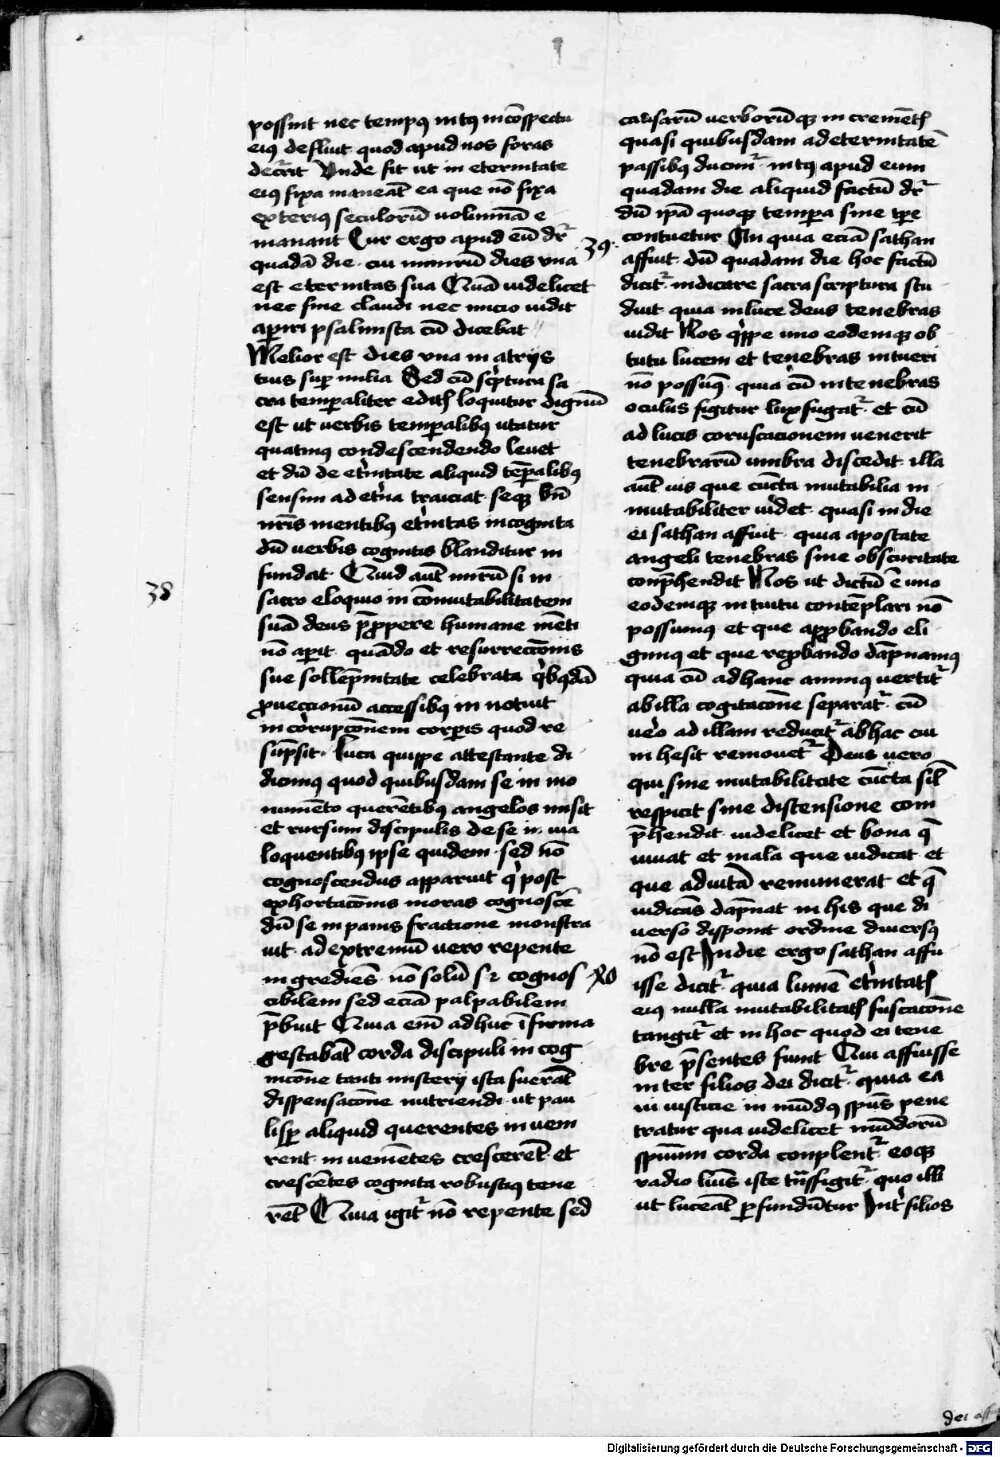 possint nec tempus intus in cōspectu
eius defluit quod apud nos foras
decurrit Vnde fit ut in eternitate
eius fixa maneāt ea que nō fixa
exterius seculorū volumīa e
manant Cur ergo apud eū dr̄
quadā die cui mirū dies vna
est eternitas sua Quā videlicet
nec fine claudi nec inicio vidit
aperiri psalmista cū dicebat
Melior est dies vna in atrijs
tuis super milia Sed cū scriptura sa
cra temporaliter editis loquitur dignū
est ut verbis temporalibus utatur
quatinus condescendendo levet
et dū de eternitate aliquid temporalibus
sensim ad eterna traiciat seque bn̄
nr̄is mentibus eternitas incognita
dū verbis cognitis blanditur in
fundat Quid aut mirū si in
38
sacro eloquio in cōmutabilitatem
suā deus propere humane mēti
nō aperit quādo et resurrectōnis
sue sollēpnitate celebrata quibusdā
proveccionū accessibus in notuit
in corrupcōnem corporis quod re
sūpsit Luca quippe attestante di
dicimus quod quibusdam se in mo
numēto querētibus angelos misit
et rursum discipulis de se in via
loquentibus ipse quidem sed nō
cognoscendus apparuit qui post
exhortacōnis moras cognosce
dū se in panis fractione monstra
vit ad extremū vero repente
ingrediēs nō solū se cognos
cibilem sed eciā palpabilem
prebuit Quia enim adhuc infirma
gestabāt corda discipuli in cog
nicōne tanti misterij ista fuerāt
dispensacōne nutriendi ut pau
lisper aliquid querentes inveni
rent invenientes crescerēt et
crescētes cognita robustius tene
rēt Quia igitur nō repente sed
causarū verborūque in crementis
quasi quibusdam ad eternitatē
passibus ducimur intus apud eum
quadam die aliquid factū dr̄
dū ipā quoque tempora sine tempore
contuetur An quia eciā sathan
39
affuit dū quadam die hoc factū
dicitur indicare sacra scriptura stu
duit quia in luce deus tenebras
vidit Nos quippe uno eodemque ob
tutu lucem et tenebras intueri
nō possumus quia cū in tenebras
oculus figitur lux fugatur et cū
ad lucis coruscacionem venerit
tenebrarū umbra discedit illa
aut vis que cūcta mutabilia in
mutabiliter videt quasi in die
ei sathan affuit quia apostate
angeli tenebras sine obscuritate
conprehendit Nos ut dictū ē uno
eodemque intuitu contēplari nō
possumus et que approbando eli
gimus et que reprobando dāpnamus
quia cū ad hanc animus vertitur
ab illa cogitacōne separatur cū
vero ad illam reducitur ab hac cui
inhesit removetur Deus vero
qui sine mutabilitate cūcta simul
respicit sine distensione com
prehendit videlicet et bona que
iuvat et mala que iudicat et
que adiutā remunerat et que
iudicās dāpnat in his que di
verso disponit ordine diversus
nō est In die ergo sathan affu
40
isse dicitur quia lumē eternitatis
eius nulla mutabilitatis fuscacōne
tangitur et in hoc quod ei tene
bre presentes fiunt Qui affuisse
inter filios dei dicitur quia ea
vi iusticie in mūdus spūs pene
tratur qua videlicet mūdorū
spirituum corda conplentur eoque
radio luminis iste transfigitur quo illi
ut luceāt perfundūtur Inter filios
dei